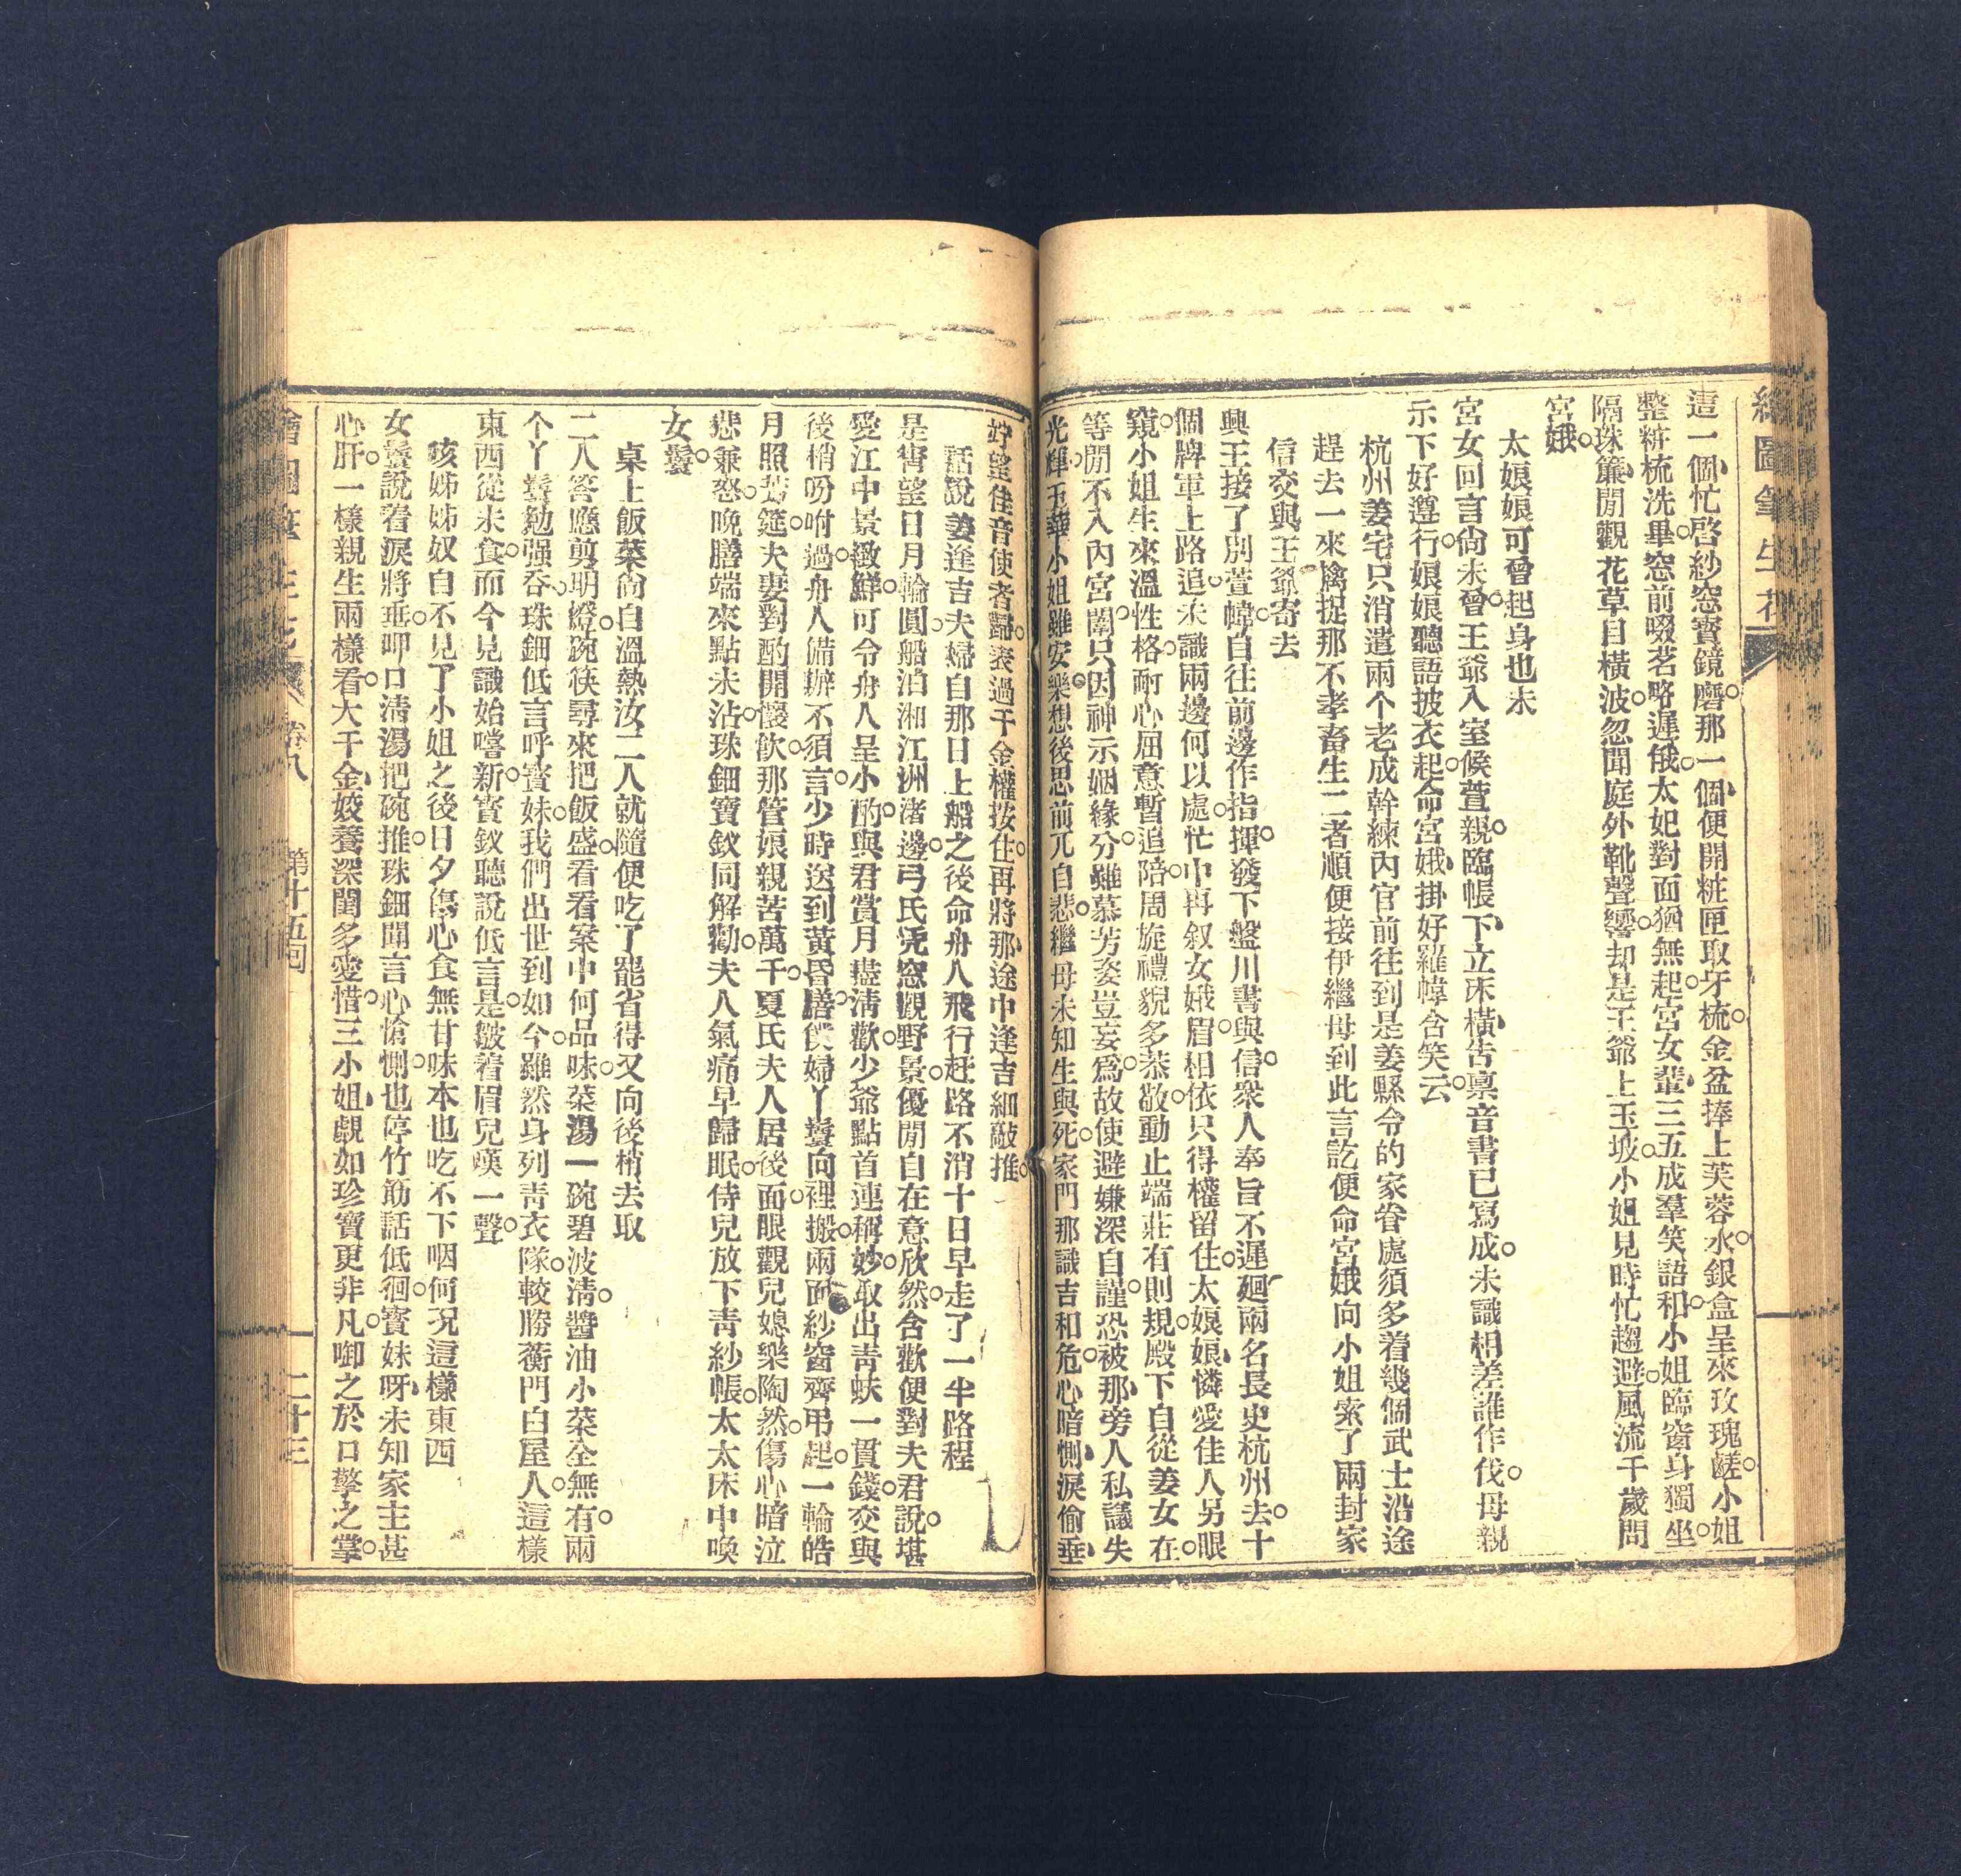 繪圖筆生花
這一個忙啓紗窓寳鏡磨那一個便開粧匣取牙梳金盆捧上芙蓉水銀盒呈來玫瑰鹺小姐
整粧梳洗畢窓前啜茗略遲俄太妃對面猶無起宮女輩三五成羣笑語和小姐臨窗身獨坐
隔珠簾閒觀花草目橫波忽聞庭外靴聲響却是王爺上玉坡小姐見時忙趨避風流千歲問
宮娥
太娘娘可曾起身也未
宮女回言尙未曾王爺入室候萱親臨帳下立床橫告禀音書已寫成未識相差誰作伐母親
示下好遵行娘娘聽語披衣起命宮娥掛好羅幃含笑云
杭州姜宅只消遣兩个老成幹練內官前往到是姜縣令的家眷處須多着幾個武士沿途
趕去一來擒捉那不孝畜生二者順便接伊繼母到此言訖便命宮娥向小姐索了兩封家
信交與王爺寄去
興王接了別萱幃自往前邊作指揮發下盤川書與信衆人奉旨不遲廻兩名長史杭州去十
個牌軍上路追未識兩邊何以處忙中再叙女娥眉相依只得權留住太娘娘憐愛佳人另眼
窺小姐生來溫性格耐心屈意暫追陪周旋禮貌多恭敬動止端莊有則規殿下自從姜女在
等閒不入內宮闈只因神示姻緣分雖慕芳姿豈妄爲故使避嫌深自謹恐被那旁人私議失
光輝玉華小姐雖安樂想後思前兀自悲繼母未知生與死家門那識吉和危心暗惻淚偷垂
竚望佳音使者歸表過千金權按住再將那途中逢吉細敲推
話說姜逢吉夫婦自那日上船之後命舟人飛行赶路不消十日早走了一半路程
是宵望日月輪圓船泊湘江洲渚邊弓氏凭窓觀野景優閒自在意欣然含歡便對夫君說堪
愛江中景緻鮮可令舟人呈小酌與君賞月盡淸歡少爺點首連稱妙取出靑蚨一貫錢交與
後梢吩咐過舟人備辦不須言少時送到黃昏膳僕婦丫鬟向裡搬兩面紗窗齊弔起一輪皓
月照芳筵夫妻對酌開懷飲那管娘親苦萬千夏氏夫人居後面眼觀兒媳樂陶然傷心暗泣
悲兼怒晚膳端來點未沾珠鈿寶釵同解勸夫人氣痛早歸眠侍兒放下靑紗帳太太床中喚
女鬟
桌上飯菜尙自溫熱汝二人就隨便吃了罷省得又向後梢去取
二人答應剪明燈碗筷尋來把飯盛看看案中何品味菜湯一碗碧波淸醬油小菜全無有兩
个丫鬟勉强吞珠鈿低言呼寳妹我們出世到如今雖然身列靑衣隊較勝蘅門白屋人這樣
東西從未食而今見識始嚐新寶釵聽說低言是皺着眉兒嘆一聲
咳姊姊奴自不見了小姐之後日夕傷心食無甘味本也吃不下咽何况這樣東西
女鬟說着淚將垂呷口淸湯把碗推珠鈿聞言心愴惻也停竹筯話低徊寳妹呀未知家主甚
心肝一樣親生兩樣看大千金姣養深閨多愛惜三小姐覷如珍寶更非凡啣之於口擎之掌
繪圖筆生花
卷八
第十五回
二十三